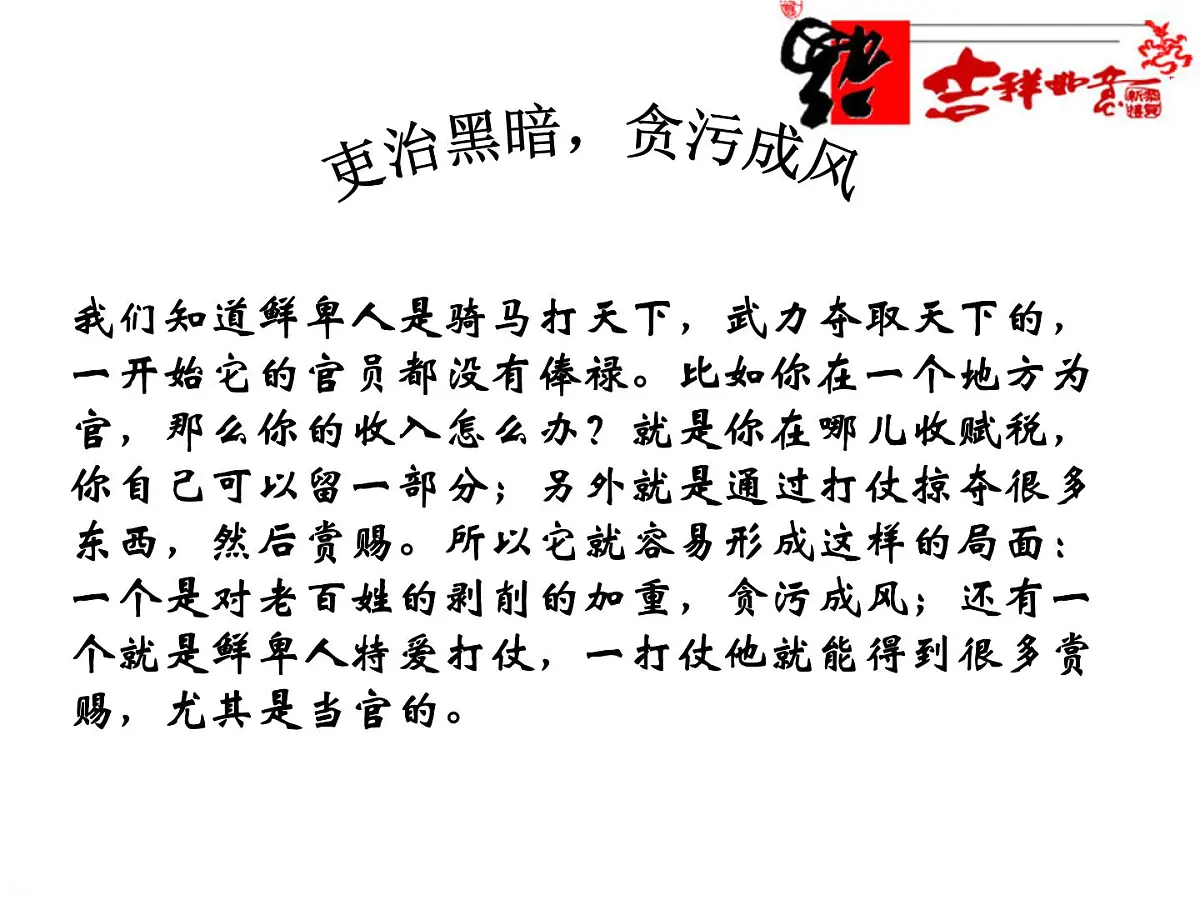 吉祥如意
吏治黑暗，贪污成风
我们知道鲜卑人是骑马打天下，武力夺取天下的，
一开始它的官员都没有俸禄。比如你在一个地方为
官，那么你的收入怎么办？就是你在哪儿收赋税，
你自己可以留一部分；另外就是通过打仗掠夺很多
东西，然后赏赐。所以它就容易形成这样的局面：
一个是对老百姓的剥削的加重，贪污成风；还有一
个就是鲜卑人特爱打仗，一打仗他就能得到很多赏
赐，尤其是当官的。